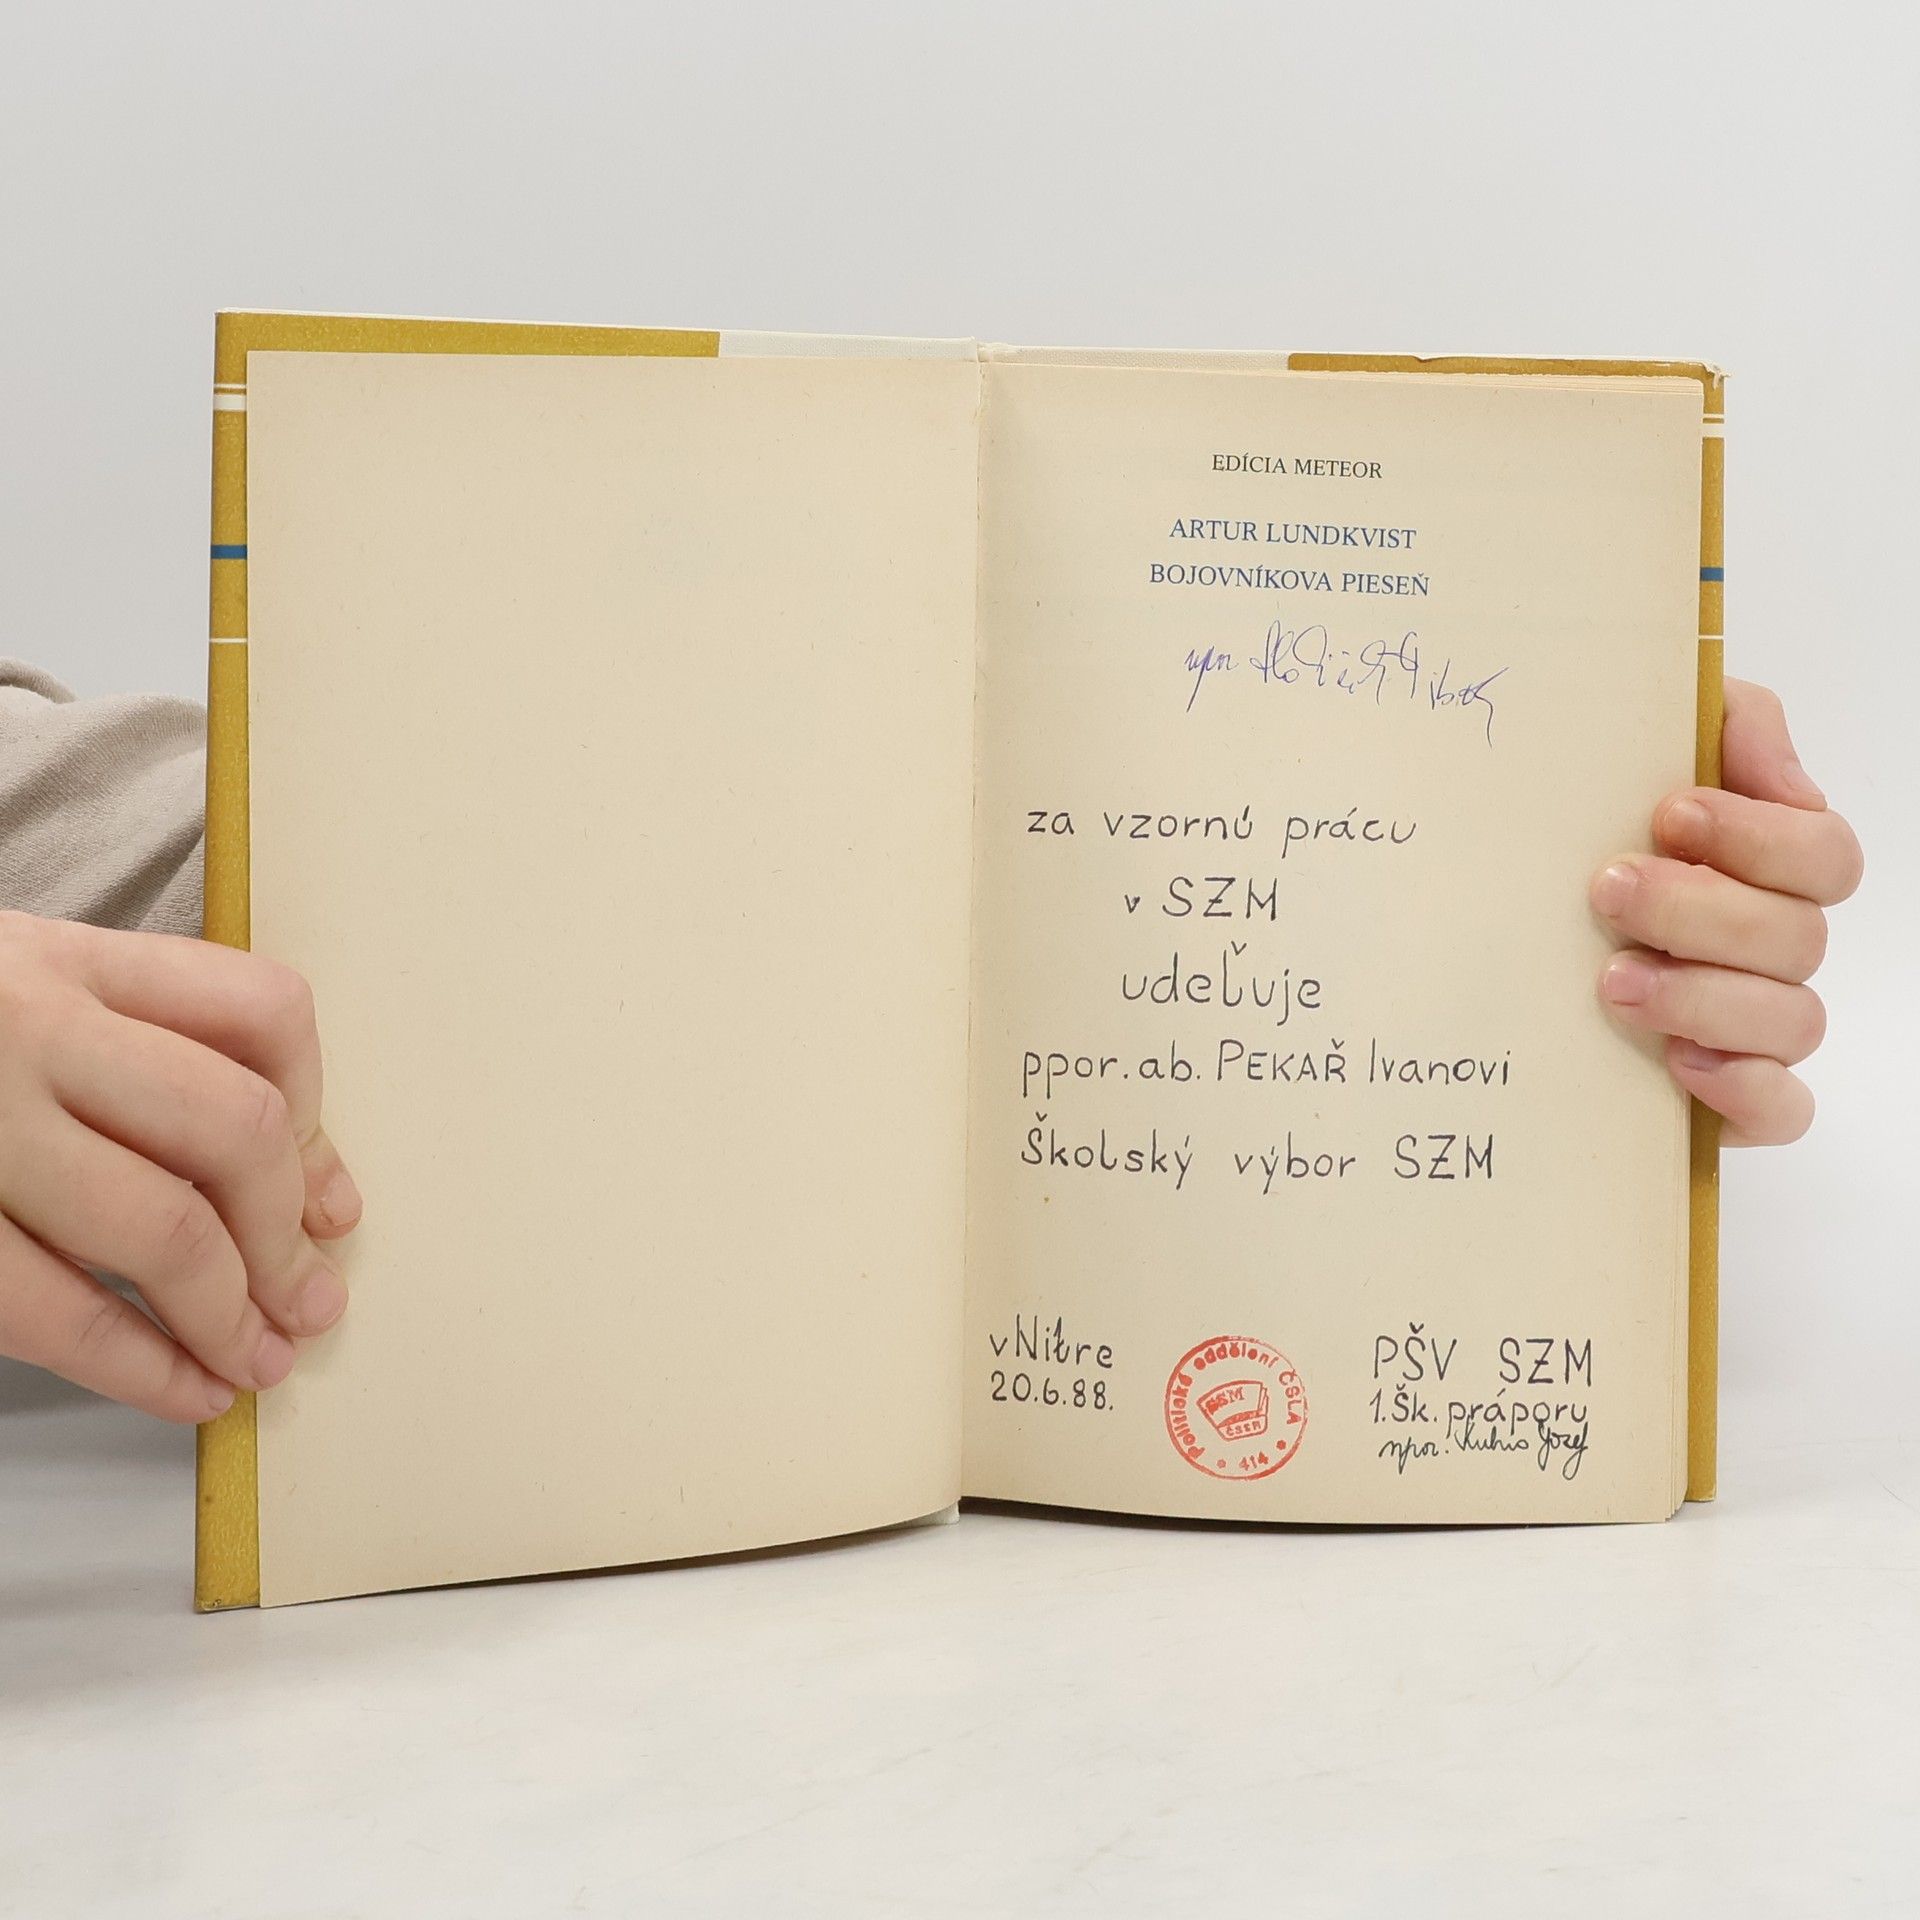 EDÍCIA METEOR
ARTUR LUNDKVIST
BOJOVNÍKOVA PIESEŇ
npor.
za vzornú prácu
v SZM
udeľuje
ppor. ab. PEKAŘ Ivanovi
Školský výbor SZM
v Nitre
20.6.88.
Politické oddělení ČSLA
SSM
ČSLA
* 414 *
PŠV SZM
1. Šk. práporu
npor. Jozef